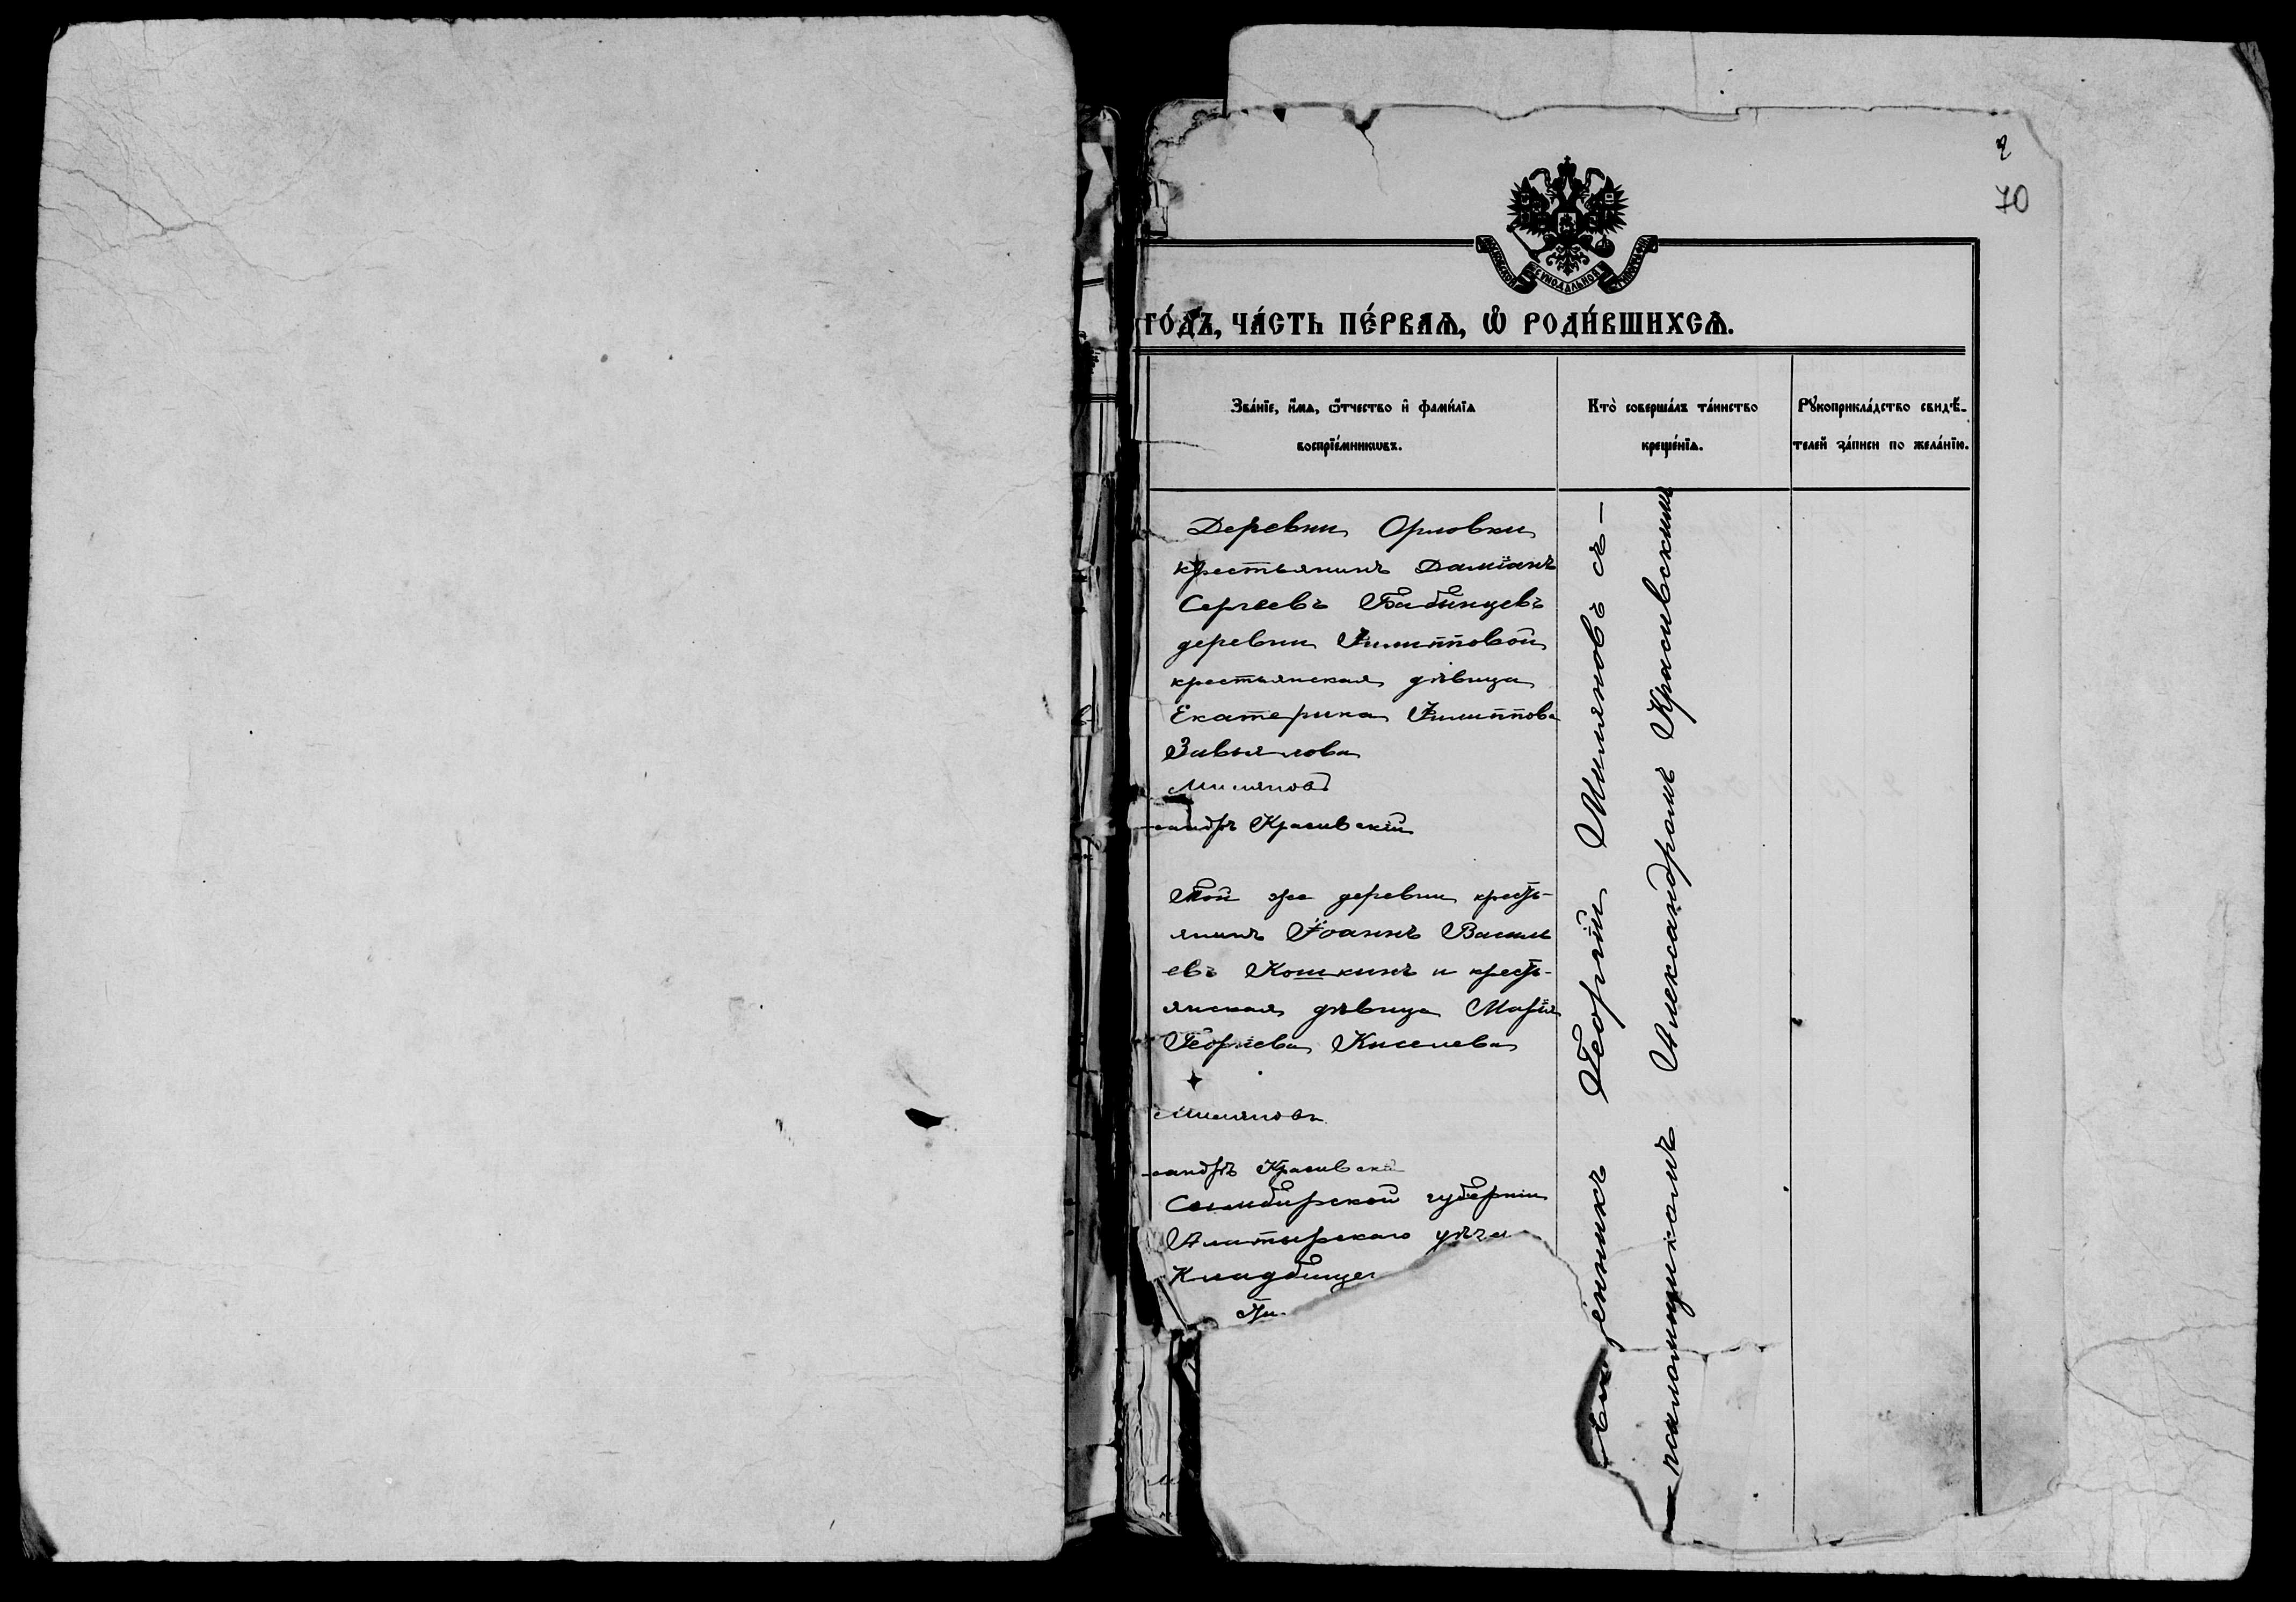 2
70
МОСКОВСКОЙ СѴНОДАЛЬНОЙ ТИПОГРАФІИ
го́дъ, ча́сть пе́рваѧ, ѡ҆ роди́вшихсѧ.
Зва́нїе, и҆́мѧ, ѻ҆́тчество и҆ фами́лїѧ
воспрїе́мникѡвъ.
Кто̀ соверша́лъ та́инство
креще́нїѧ.
Рꙋкоприкла́дство свидѣ́-
телей за́писи по жела́нїю.
Деревни Орловки
крестьянинъ Даміанъ
Сергѣевъ Бабинцевъ
деревни Филипповой
крестьянская дѣвица
Екатерина Филиппова
Завьялова
Миляновъ
сандръ Красивскій
Той же деревни кресть-
янинъ Іоаннъ Василь
евъ Кошкинъ и кресть-
янская дѣвица Марія
Георгіева Киселева
Миляновъ
сандръ Красивскій
Симбирской губерніи
Алатырскаго уѣз
Кладбище
енникъ Георгій Миляновъ съ —
псаломщикомъ Александромъ Красивскимъ